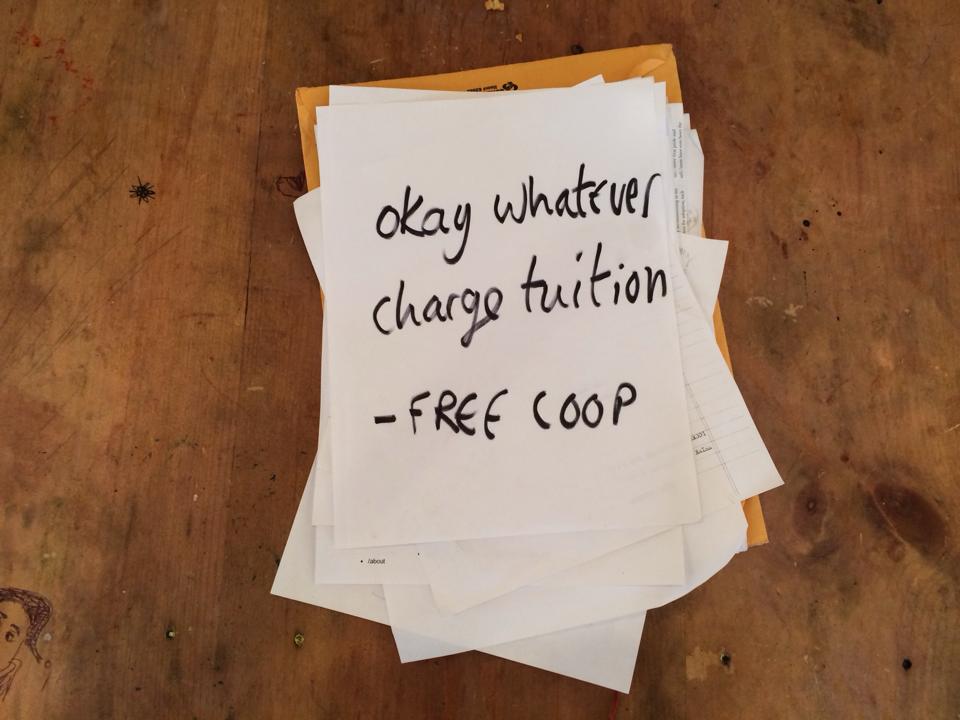 okay whatever
charge tuition
- FREE COOP
• /about